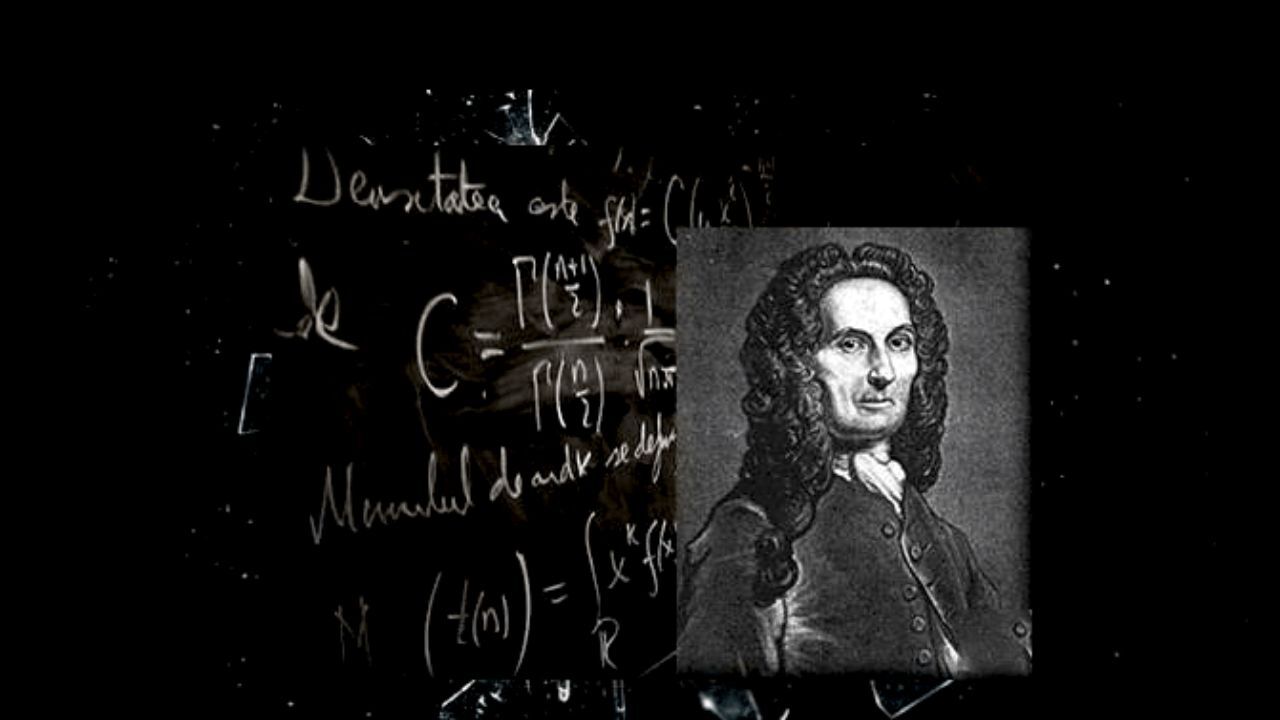 Densitatea este f(x) = C(1+x²
de C = Γ(n+1/2) / Γ(n/2) · 1 / √nπ
Momentul de ordk se defin
M (t(n)) = ∫R x^k f(x